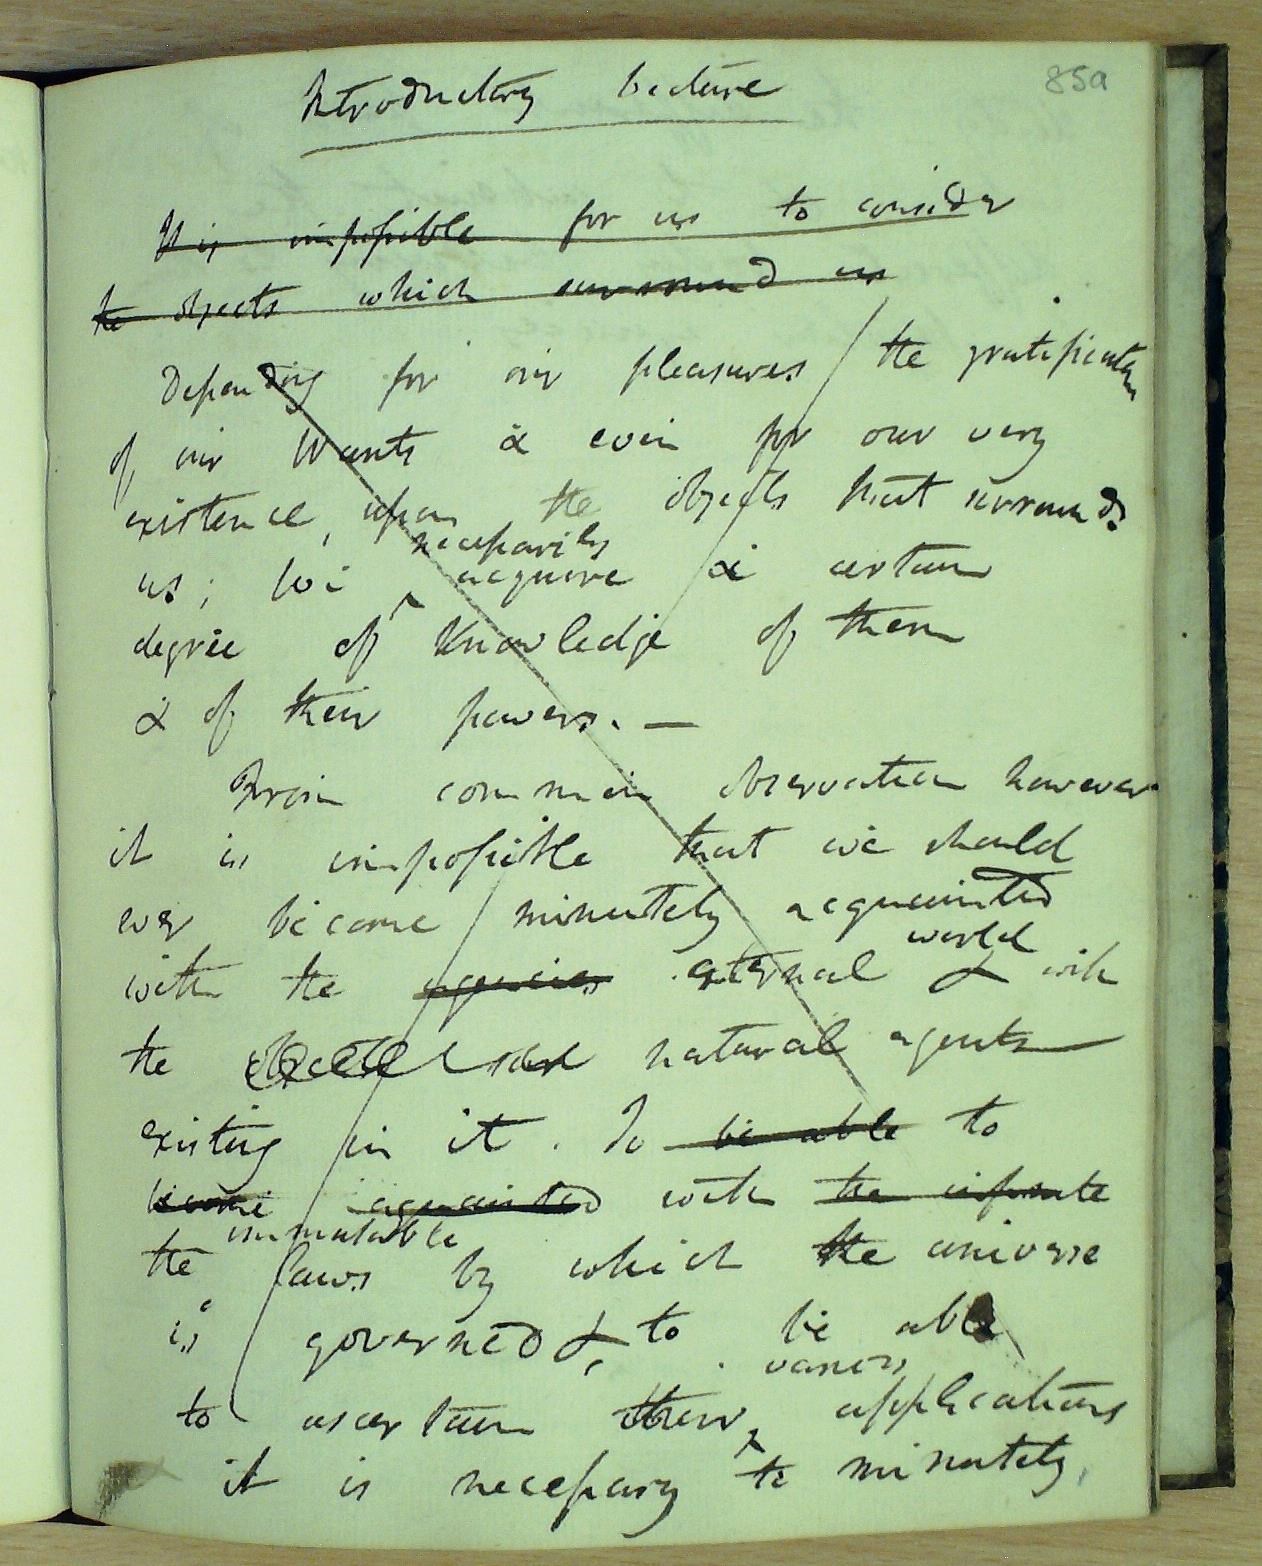 Introductory Lecture
85a
It is impossible for us to consider
the objects which surround us
Depending for our pleasures the gratification
of our Wants & even for our very
existence, upon the objects that surrounds
necessarily
us; We acquire a certain
degree of Knowledge of them
& of their powers. —
From common observation however
it is impossible that we should
ever become minutely acquainted
world
with the agencies external & with
the natural agents
existing in it. To be able to
become acquainted with the infinite
immutable
the laws by which the universe
is governed & to be able
various
to ascertain their applications
it is necessary to minutely